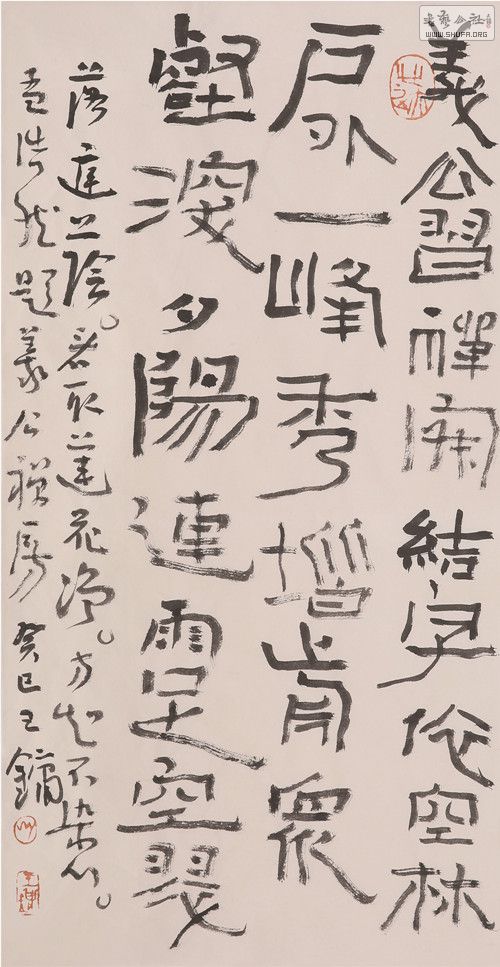 書藝公社
WWW.SHUFA.ORG
義公習禪寂結宇依空林
戶外一峰秀階前眾
壑深夕陽連雨足空翠
落庭陰。看取蓮花淨。方知不染心。
孟浩然題義公禪房 癸巳王鏞